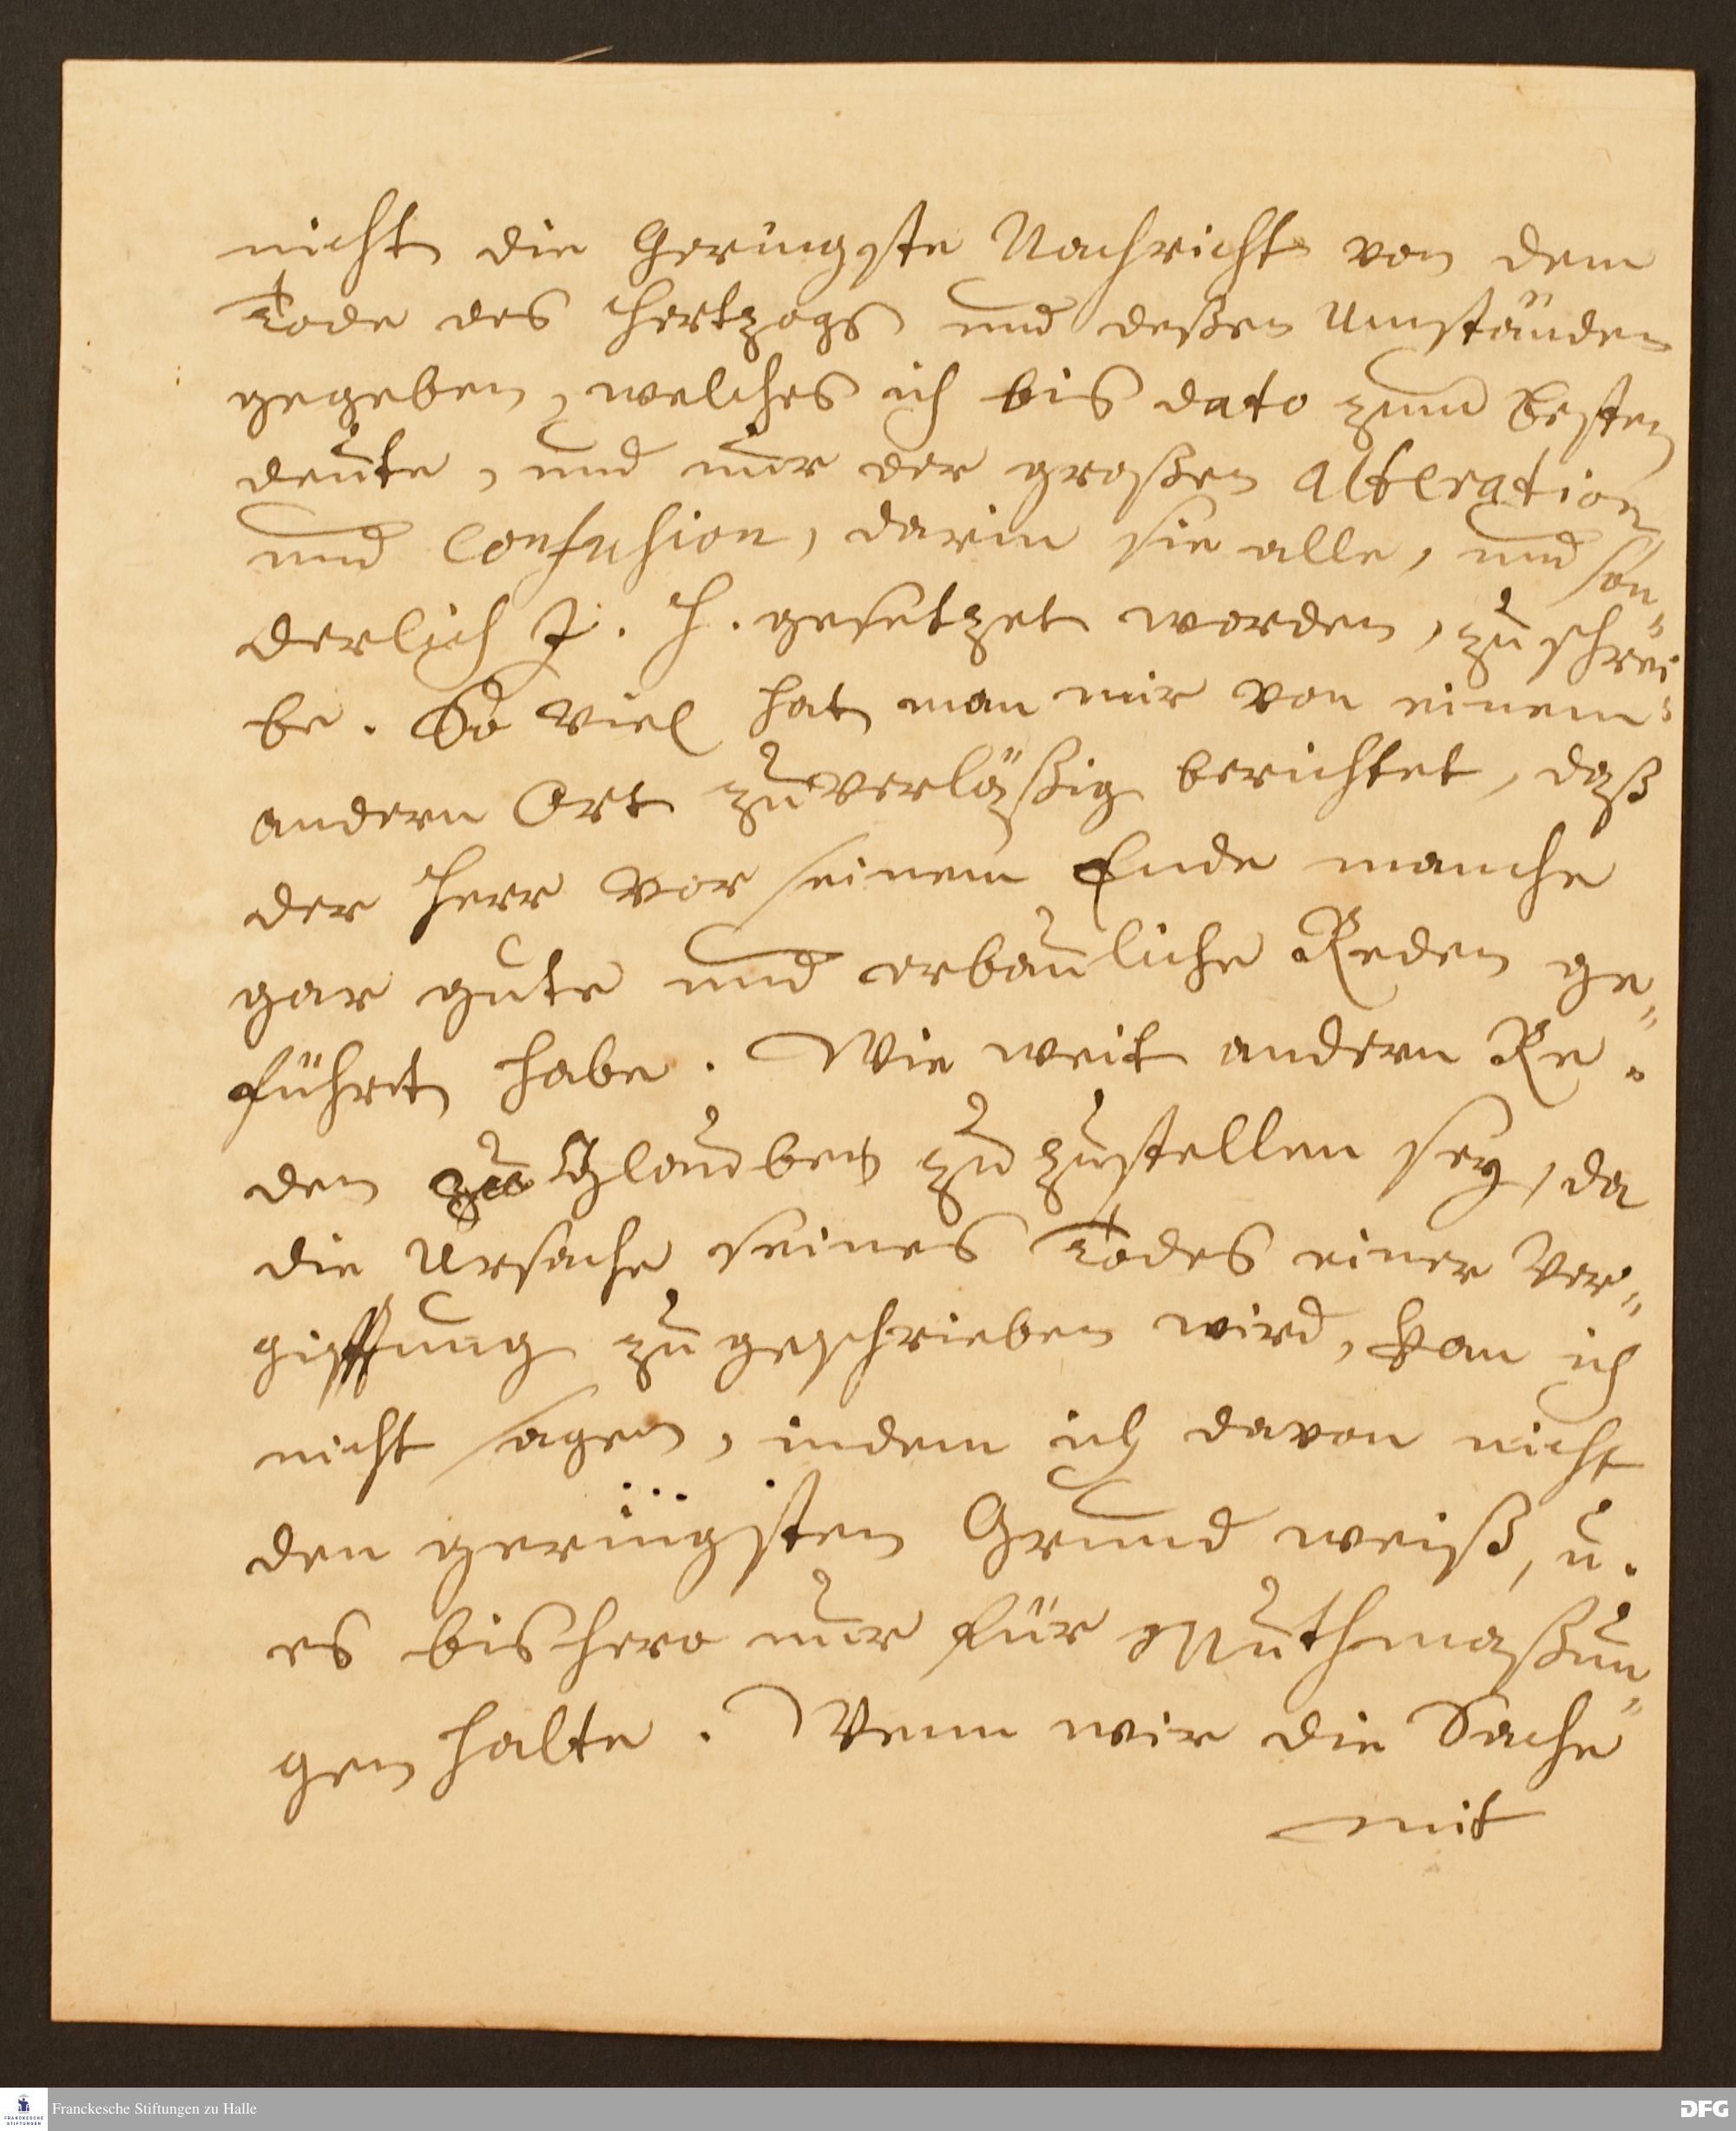 nicht die Geringste Nachricht von dem
Tode des Hertzogs und deßen Umständen
gegeben, welches ich bis dato zum besten
deute, und nur der großen alteration
und Confusion, darin sie alle, und son„
derlich J. H. gesetzet worden, zuschrei„
be. So viel hat man mir von einem
andern Ort zuverläßig berichtet, daß
der Herr vor seinem Ende manche
gar gute und erbauliche Reden ge„
führet habe. Wie weit andern Re„
den zu Glauben zu zustellen sey, da
die Ursache seines Todes einer Ver„
gifftung zugeschrieben wird, kan ich
nicht sagen, indem ich davon nicht
den geringsten Grund weiß, u.
es bishero nur für Muthmaßun„
gen halte. Wenn wir die Sache
mit
Franckesche Stiftungen zu Halle
FRANCKESCHE STIFTUNGEN
DFG